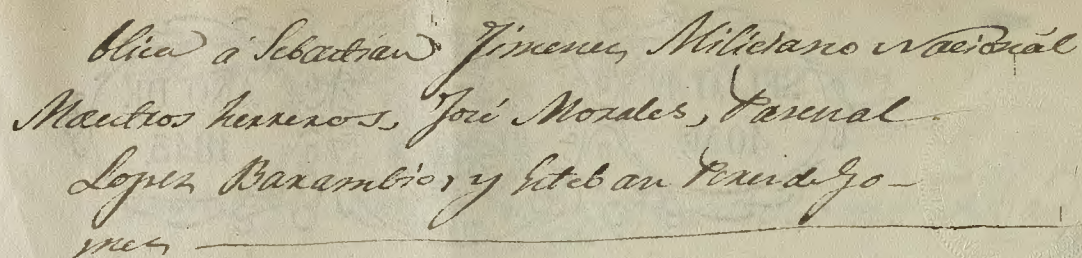 blica á Sebastian Jimenez, Miliciano Nacionál
Maestros herreros, José Morales, Pascual
Lopez Barambio, y Esteban Perez de Go-
mez